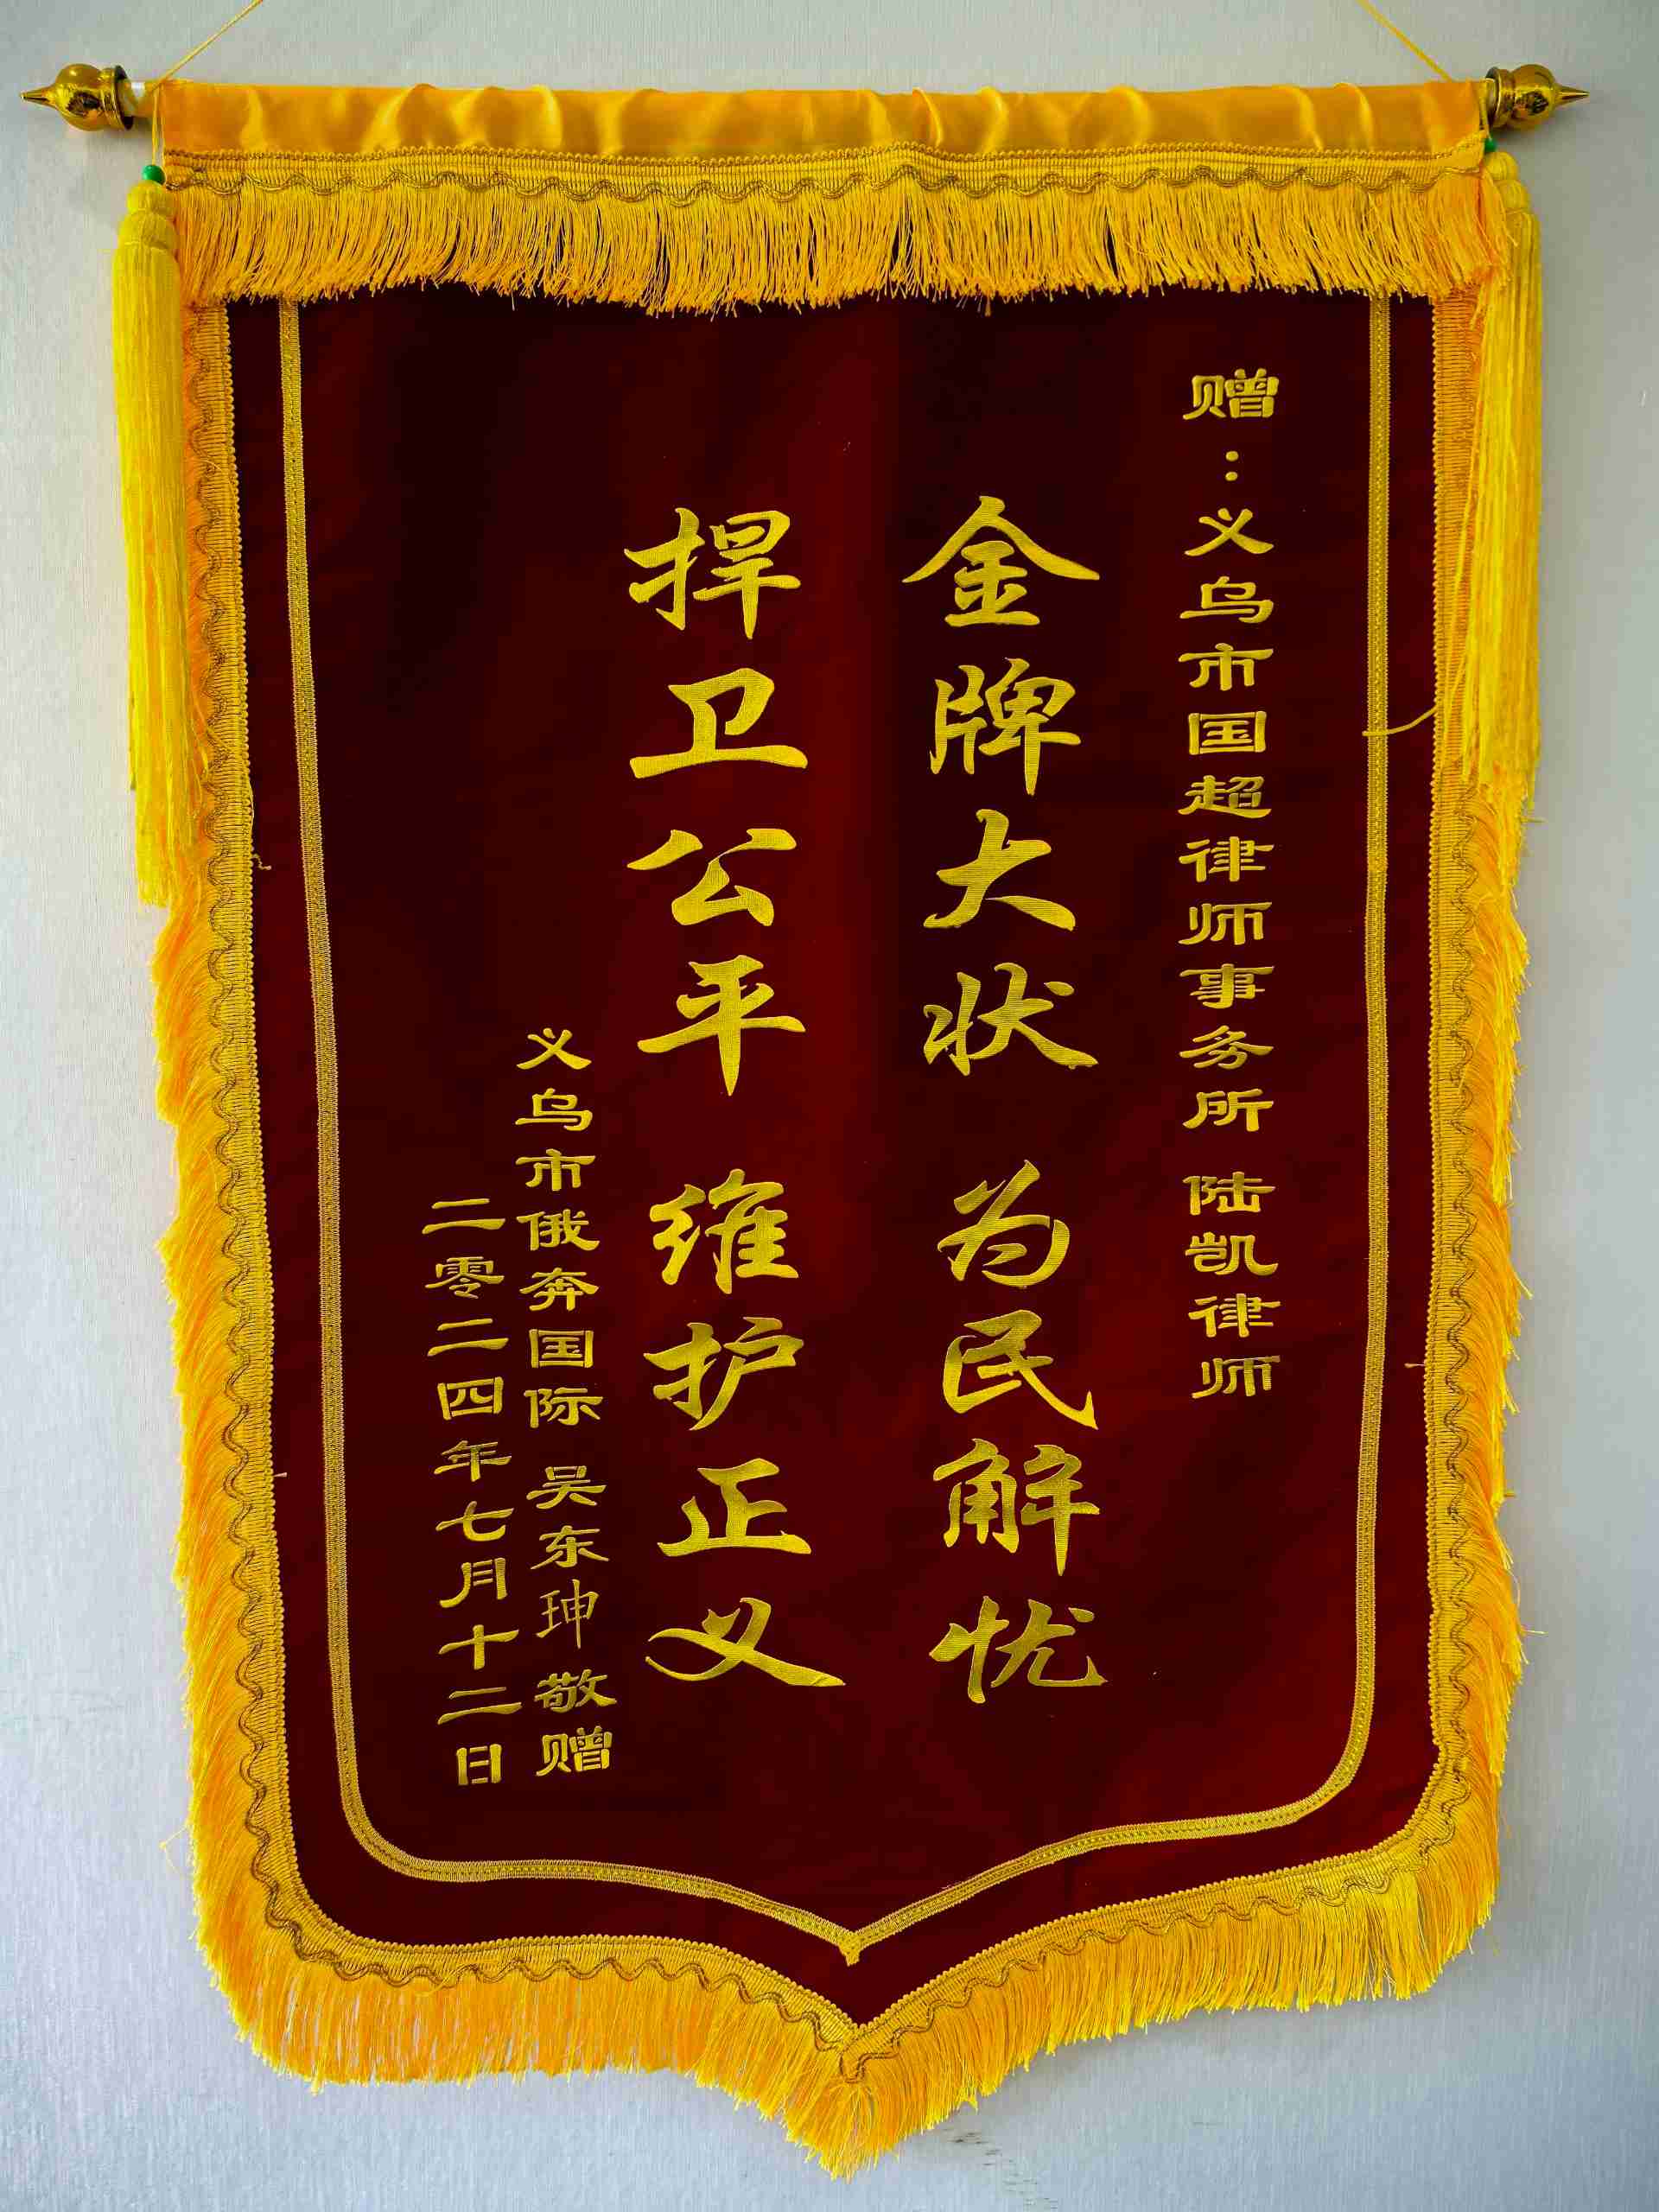 赠：义乌市国超律师事务所 陆凯律师
金牌大状 为民解忧
捍卫公平 维护正义
义乌市俄奔国际 吴东珅 敬赠
二零二四年七月十二日